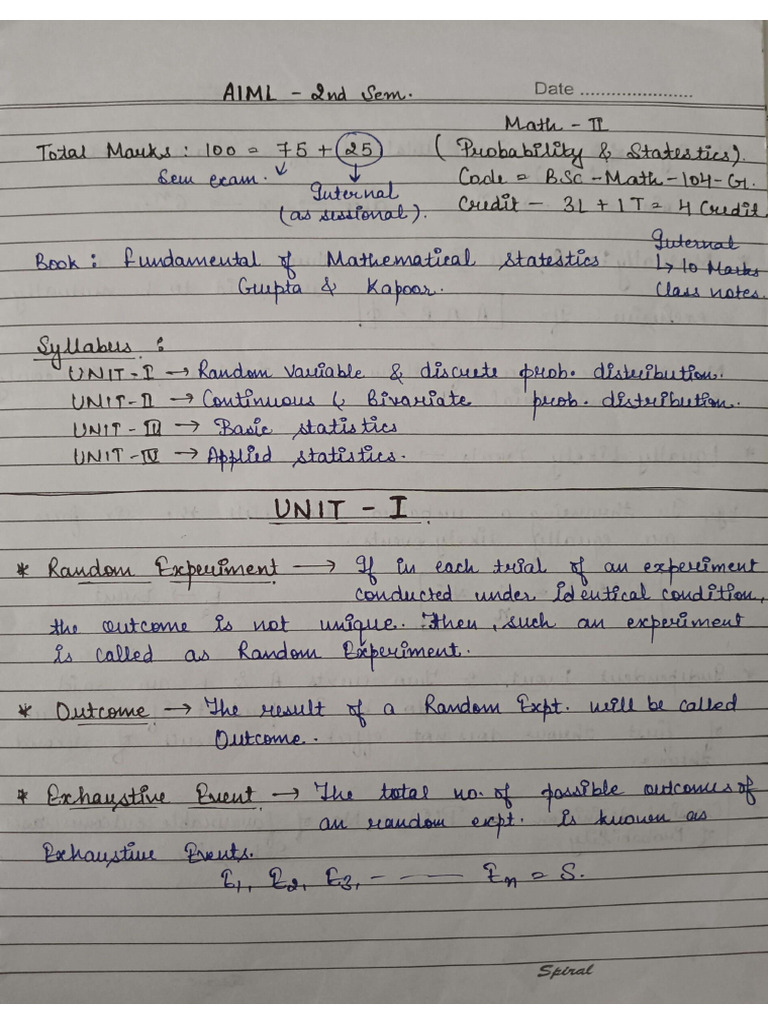 AIML - 2nd Sem.
Date ......................
Math - II
Total Marks : 100 = 75 + 25
(Probability & Statestics).
Sem exam.
Internal
(as sessional).
Code = BSC-Math-104-G.
Credit - 3L + 1T = 4 Credit
Book : Fundamental of Mathematical Statestics
Gupta & Kapoor.
Internal
↳ 10 Marks
Class notes.
Syllabus :
UNIT-I → Random Variable & discrete prob. distribution.
UNIT-II → Continuous & Bivariate prob. distribution.
UNIT-III → Basic statistics
UNIT-IV → Applied statistics.
UNIT - I
* Random Experiment → If in each trial of an experiment
conducted under identical condition,
the outcome is not unique. Then, such an experiment
is called as Random Experiment.
* Outcome → The result of a Random Expt. will be called
Outcome.
* Exhaustive Event → The total no. of possible outcomes of
an random expt. is known as
Exhaustive Events.
E1, E2, E3, - - - — En = S.
Spiral